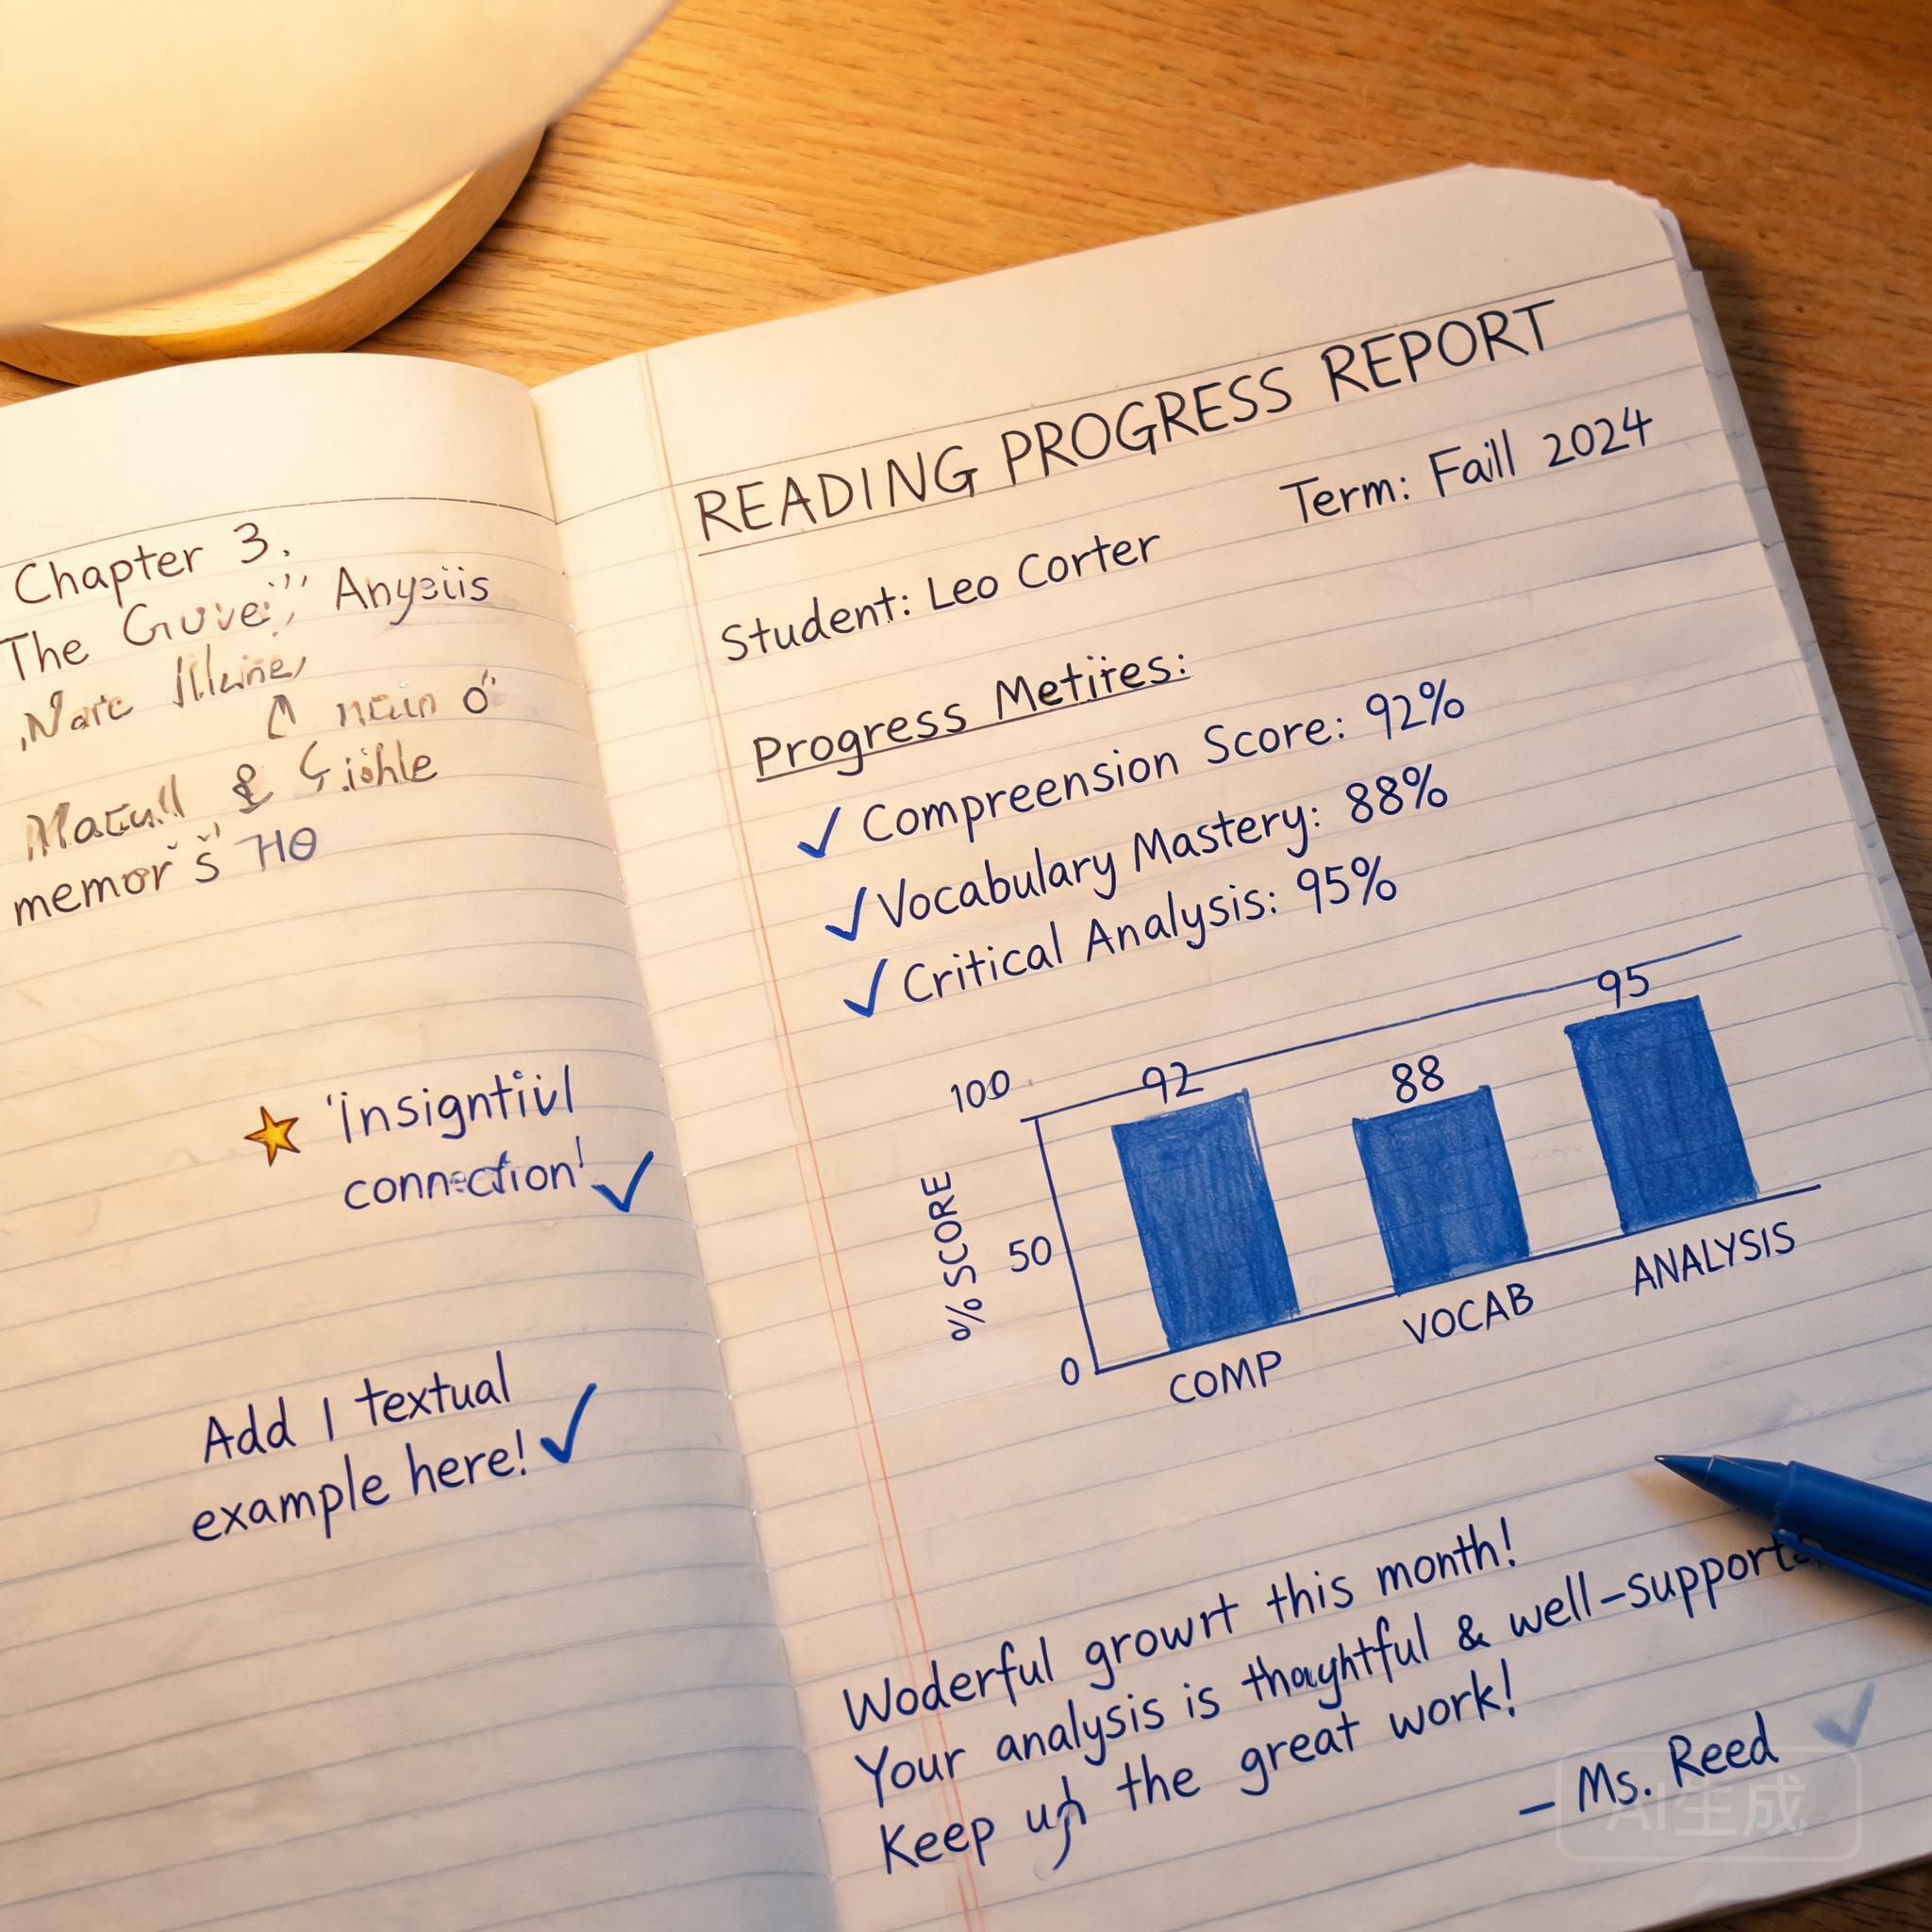 Chapter 3.
The
memor's
'Insigntiul
connection!
Add 1 textual
example here!
READING PROGRESS REPORT
Term: Faill 2024
Student: Leo Corter
Progress Metires:
✓ Compreension Score: 92%
✓ Vocabulary Mastery: 88%
✓ Critical Analysis: 95%
100
50
0
% SCORE
92
88
95
COMP
VOCAB
ANALYSIS
Woderful growrt this month!
Your analysis is thoyhtful & well-support
Keep up the great work!
– Ms. Reed
AI生成